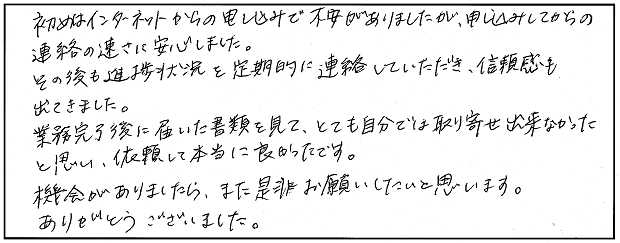 初めはインターネットからの申し込みで不安がありましたが、申し込みしてからの
連絡の速さに安心しました。
その後も進捗状況を定期的に連絡していただき、信頼感も
出てきました。
業務完了後に届いた書類を見て、とても自分では取り寄せ出来なかった
と思い、依頼して本当に良かったです。
機会がありましたら、また是非お願いしたいと思います。
ありがとうございました。